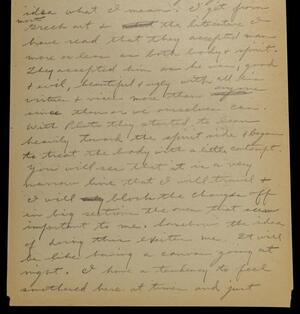 idea what I mean? I get from
most
Greek art & the literature I
have read that they accepted man
more or less as both body & spirit.
They accepted him as he was, good
& evil, beautiful & ugly with all his
virtues & vices more than any one
since then or we ourselves can.
With Plato they started to lean
heavily toward the spirit side & began
to treat the body with a little contempt.
You will see that it is a very
narrow line that I will travel &
I will block the changes off
in big sections the ones that seem
important to me. Somehow the idea
of doing this excites me. It will
be like having a canvas going at
night. I have a tendency to feel
smothered here at times and just